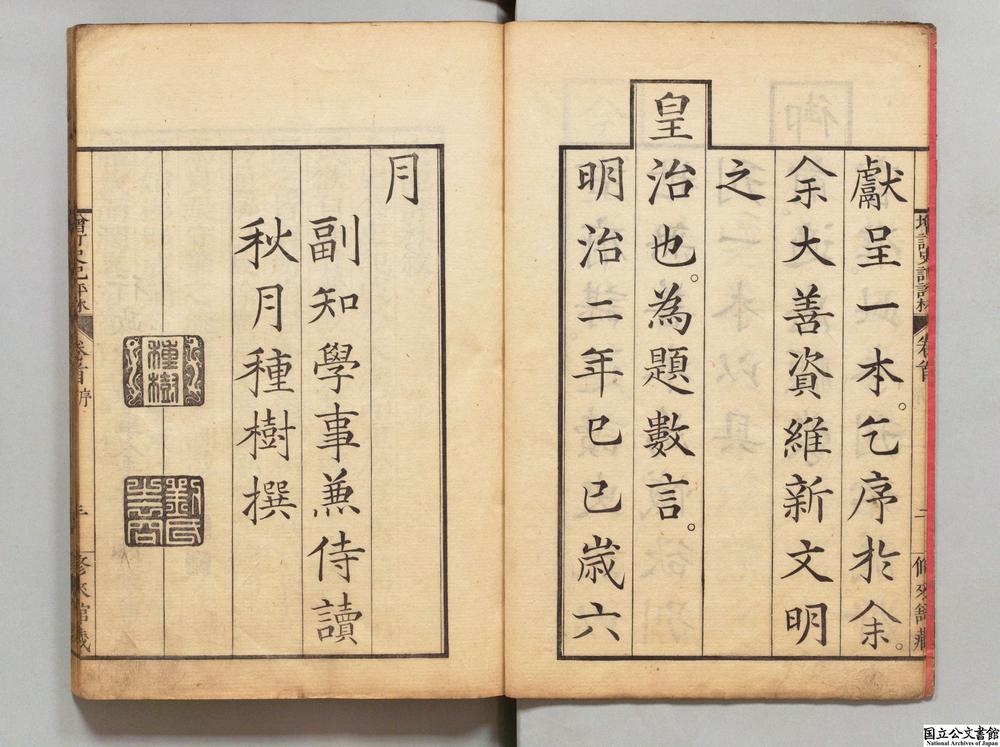 獻呈一本。乞序於余。
余大善資維新文明
之
皇
治也。為題數言。
明治二年己巳歳六
月
副知學事兼侍讀
秋月種樹撰
種樹
增訂史記評林
卷首
二
修來館藏
增訂史記評林
卷首
序
修來館藏
国立公文書館
National Archives of Japan